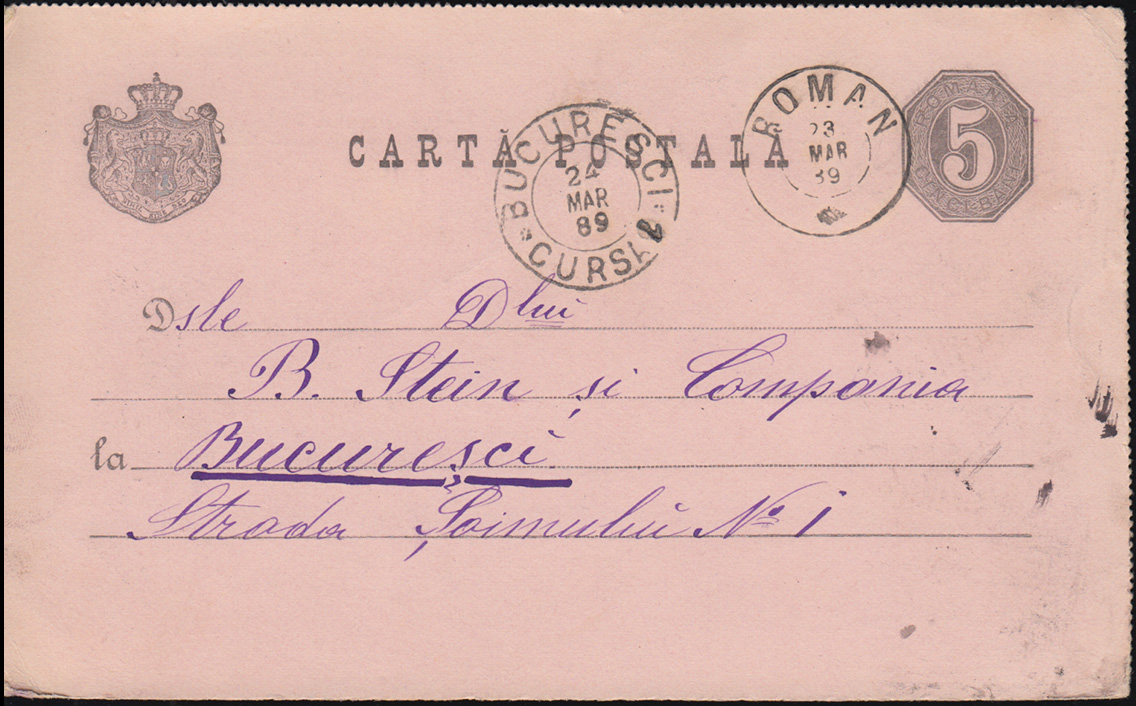 CARTĂ POSTALĂ
BUCURESCI
24
MAR
89
CURSA 2
ROMAN
23
MAR
89
ROMANIA
5
CINCI BANI
NIHIL SINE DEO
Dsle Dlui
B. Stein și Compania
la Bucuresci
Strada Șoimului No 1